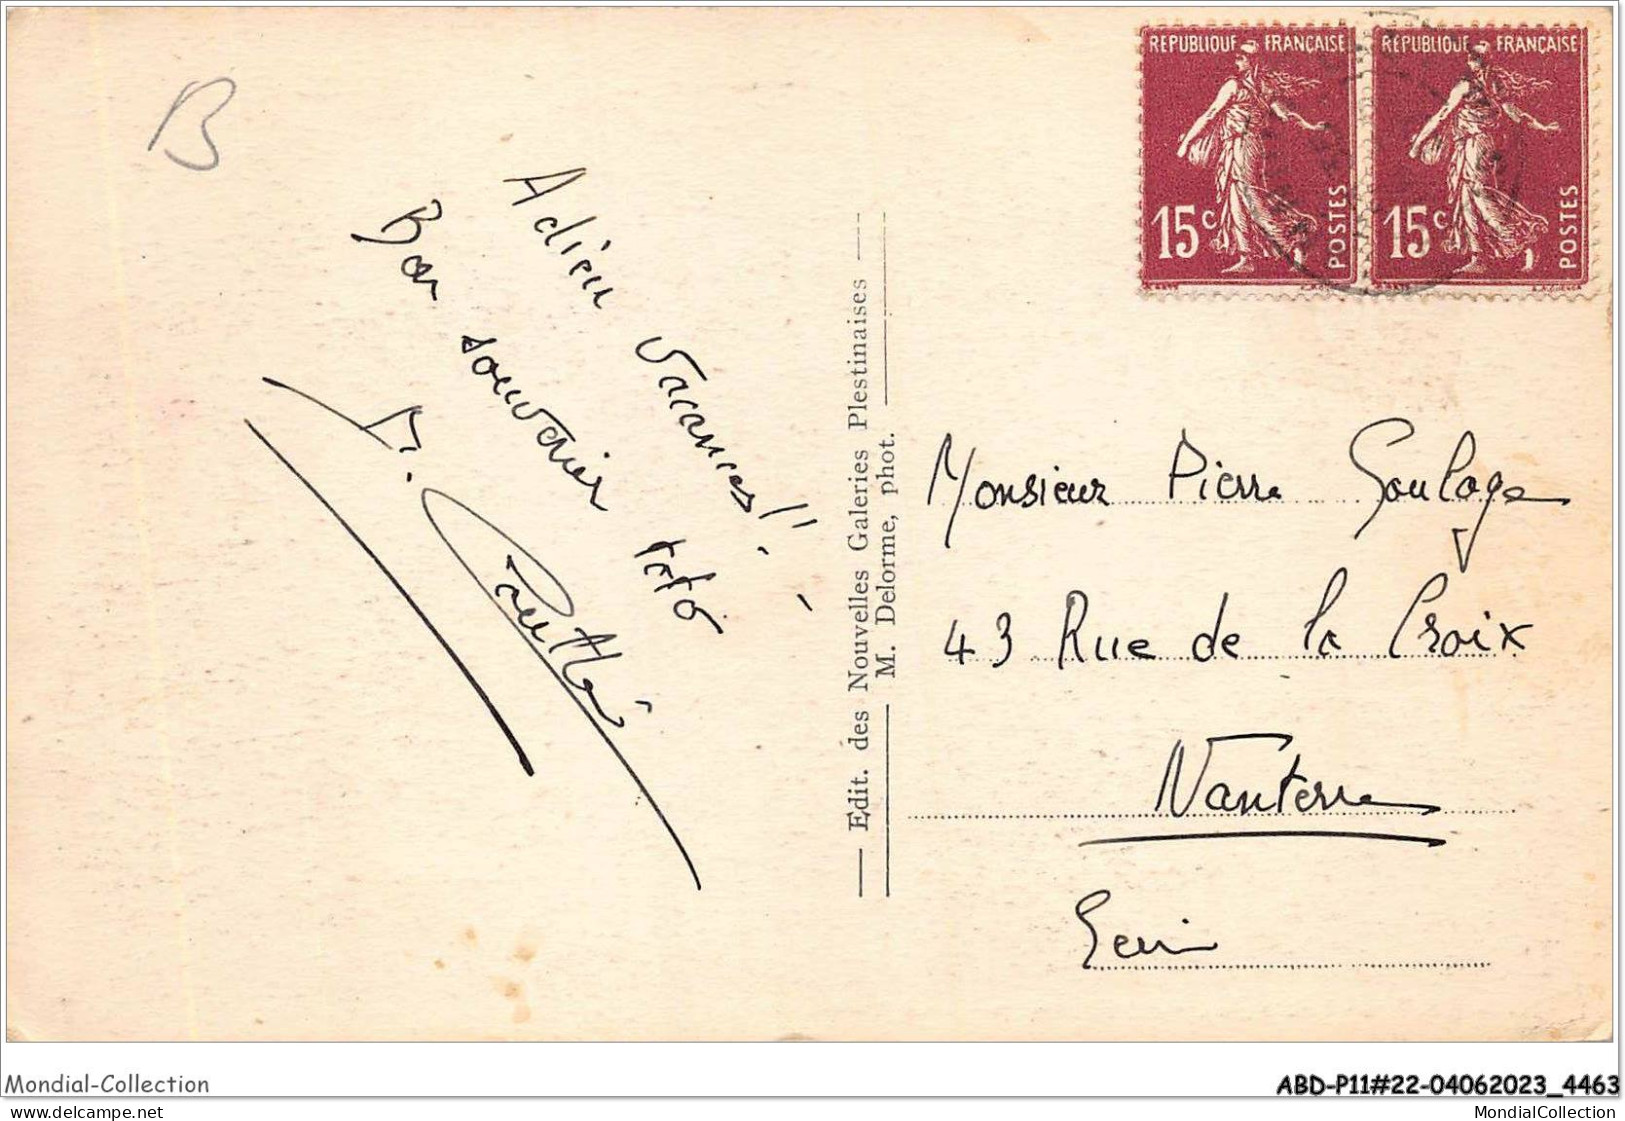 B
Adieu vacances!!
Bon souvenir
Edit. des Nouvelles Galeries Plestinaises
M. Delorme, phot.
RÉPUBLIQUE FRANÇAISE
15c
POSTES
RÉPUBLIQUE FRANÇAISE
15c
POSTES
Monsieur Pierre Soulage
43 Rue de la Croix
Nanterre
Seine
Mondial-Collection
ABD-P11#22-04062023_4463
www.delcampe.net
MondialCollection